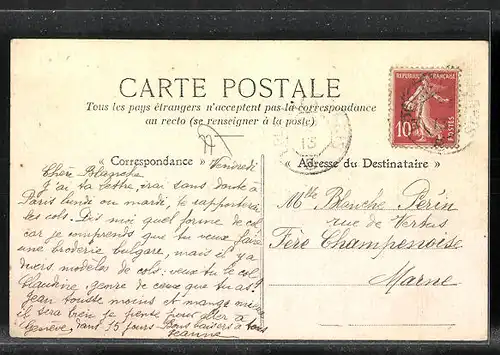 CARTE POSTALE
Tous les pays étrangers n'acceptent pas la correspondance
au recto (se renseigner à la poste)
« Correspondance »
« Adresse du Destinataire »
RÉPUBLIQUE FRANÇAISE
10
POSTES
Vendredi
Chère Blanche
J'ai ta lettre, irai sans doute à
Paris lundi ou mardi, te rapporterai
les cols. Dis moi quel forme de col
car je comprends que tu veux faire
une broderie bulgare, mais il y a
divers modèles de cols: veux tu le col
Claudine, genre de ceux que tu as?
Jean tousse moins et mange mieux
il sera bien je pense pour aller à
Genève, dans 15 jours. Bons baisers à tous
Jeanne
Mlle Blanche Périn
rue de Vertus
Fère Champenoise
Marne